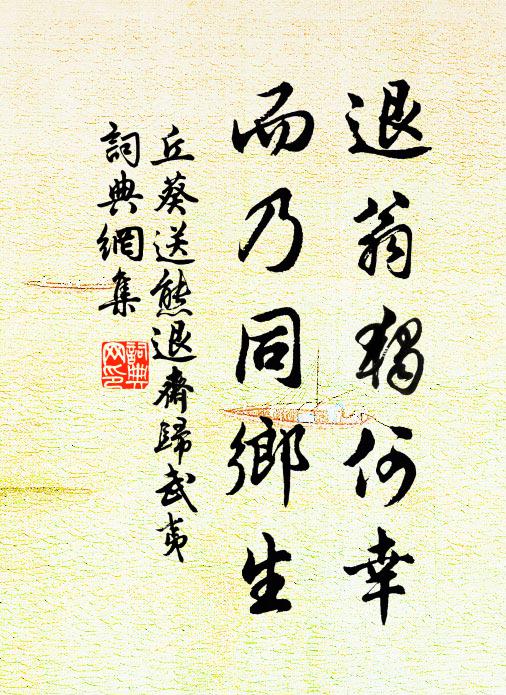 退翁獨何幸
而乃同鄉生
丘葵送熊退齋歸武夷
詞典網集
詞典
网印